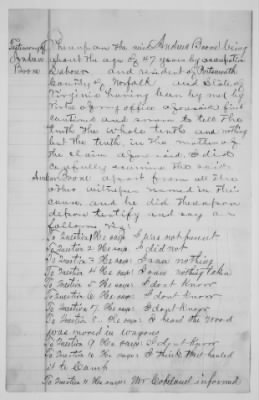 Testimony of
Andrew
Boone
Thereupon the said Andrew Boone being
about the age of 47 years by occupation
Labour and resident of Portsmouth
County of Norfolk and State of
Virginia having been by me by
virtue of my office aforesaid first
cautioned and sworn to tell the
truth the whole truth and nothing
but the truth, in the matter of
the claim aforesaid, I did
carefully examine the said
Andrew Boone apart from all the
other witnesses named in this
cause, and he did thereupon
depose testify and say as
follows viz
To Question 1 He says I was not present
To Question 2 He says I did not
To Question 3 He says I saw nothing
To Question 4 He says I saw nothing taken
To Question 5 He says I dont Know
To Question 6 He says I dont Know
To Question 7 He says I dont Know
To Question 8 He says I heard the Wood
was moved in wagons
To Question 9 He says I dont Know
To Question 10 He says I think they hauled
it to Camp
To Question 11 He says Mr Copeland informed